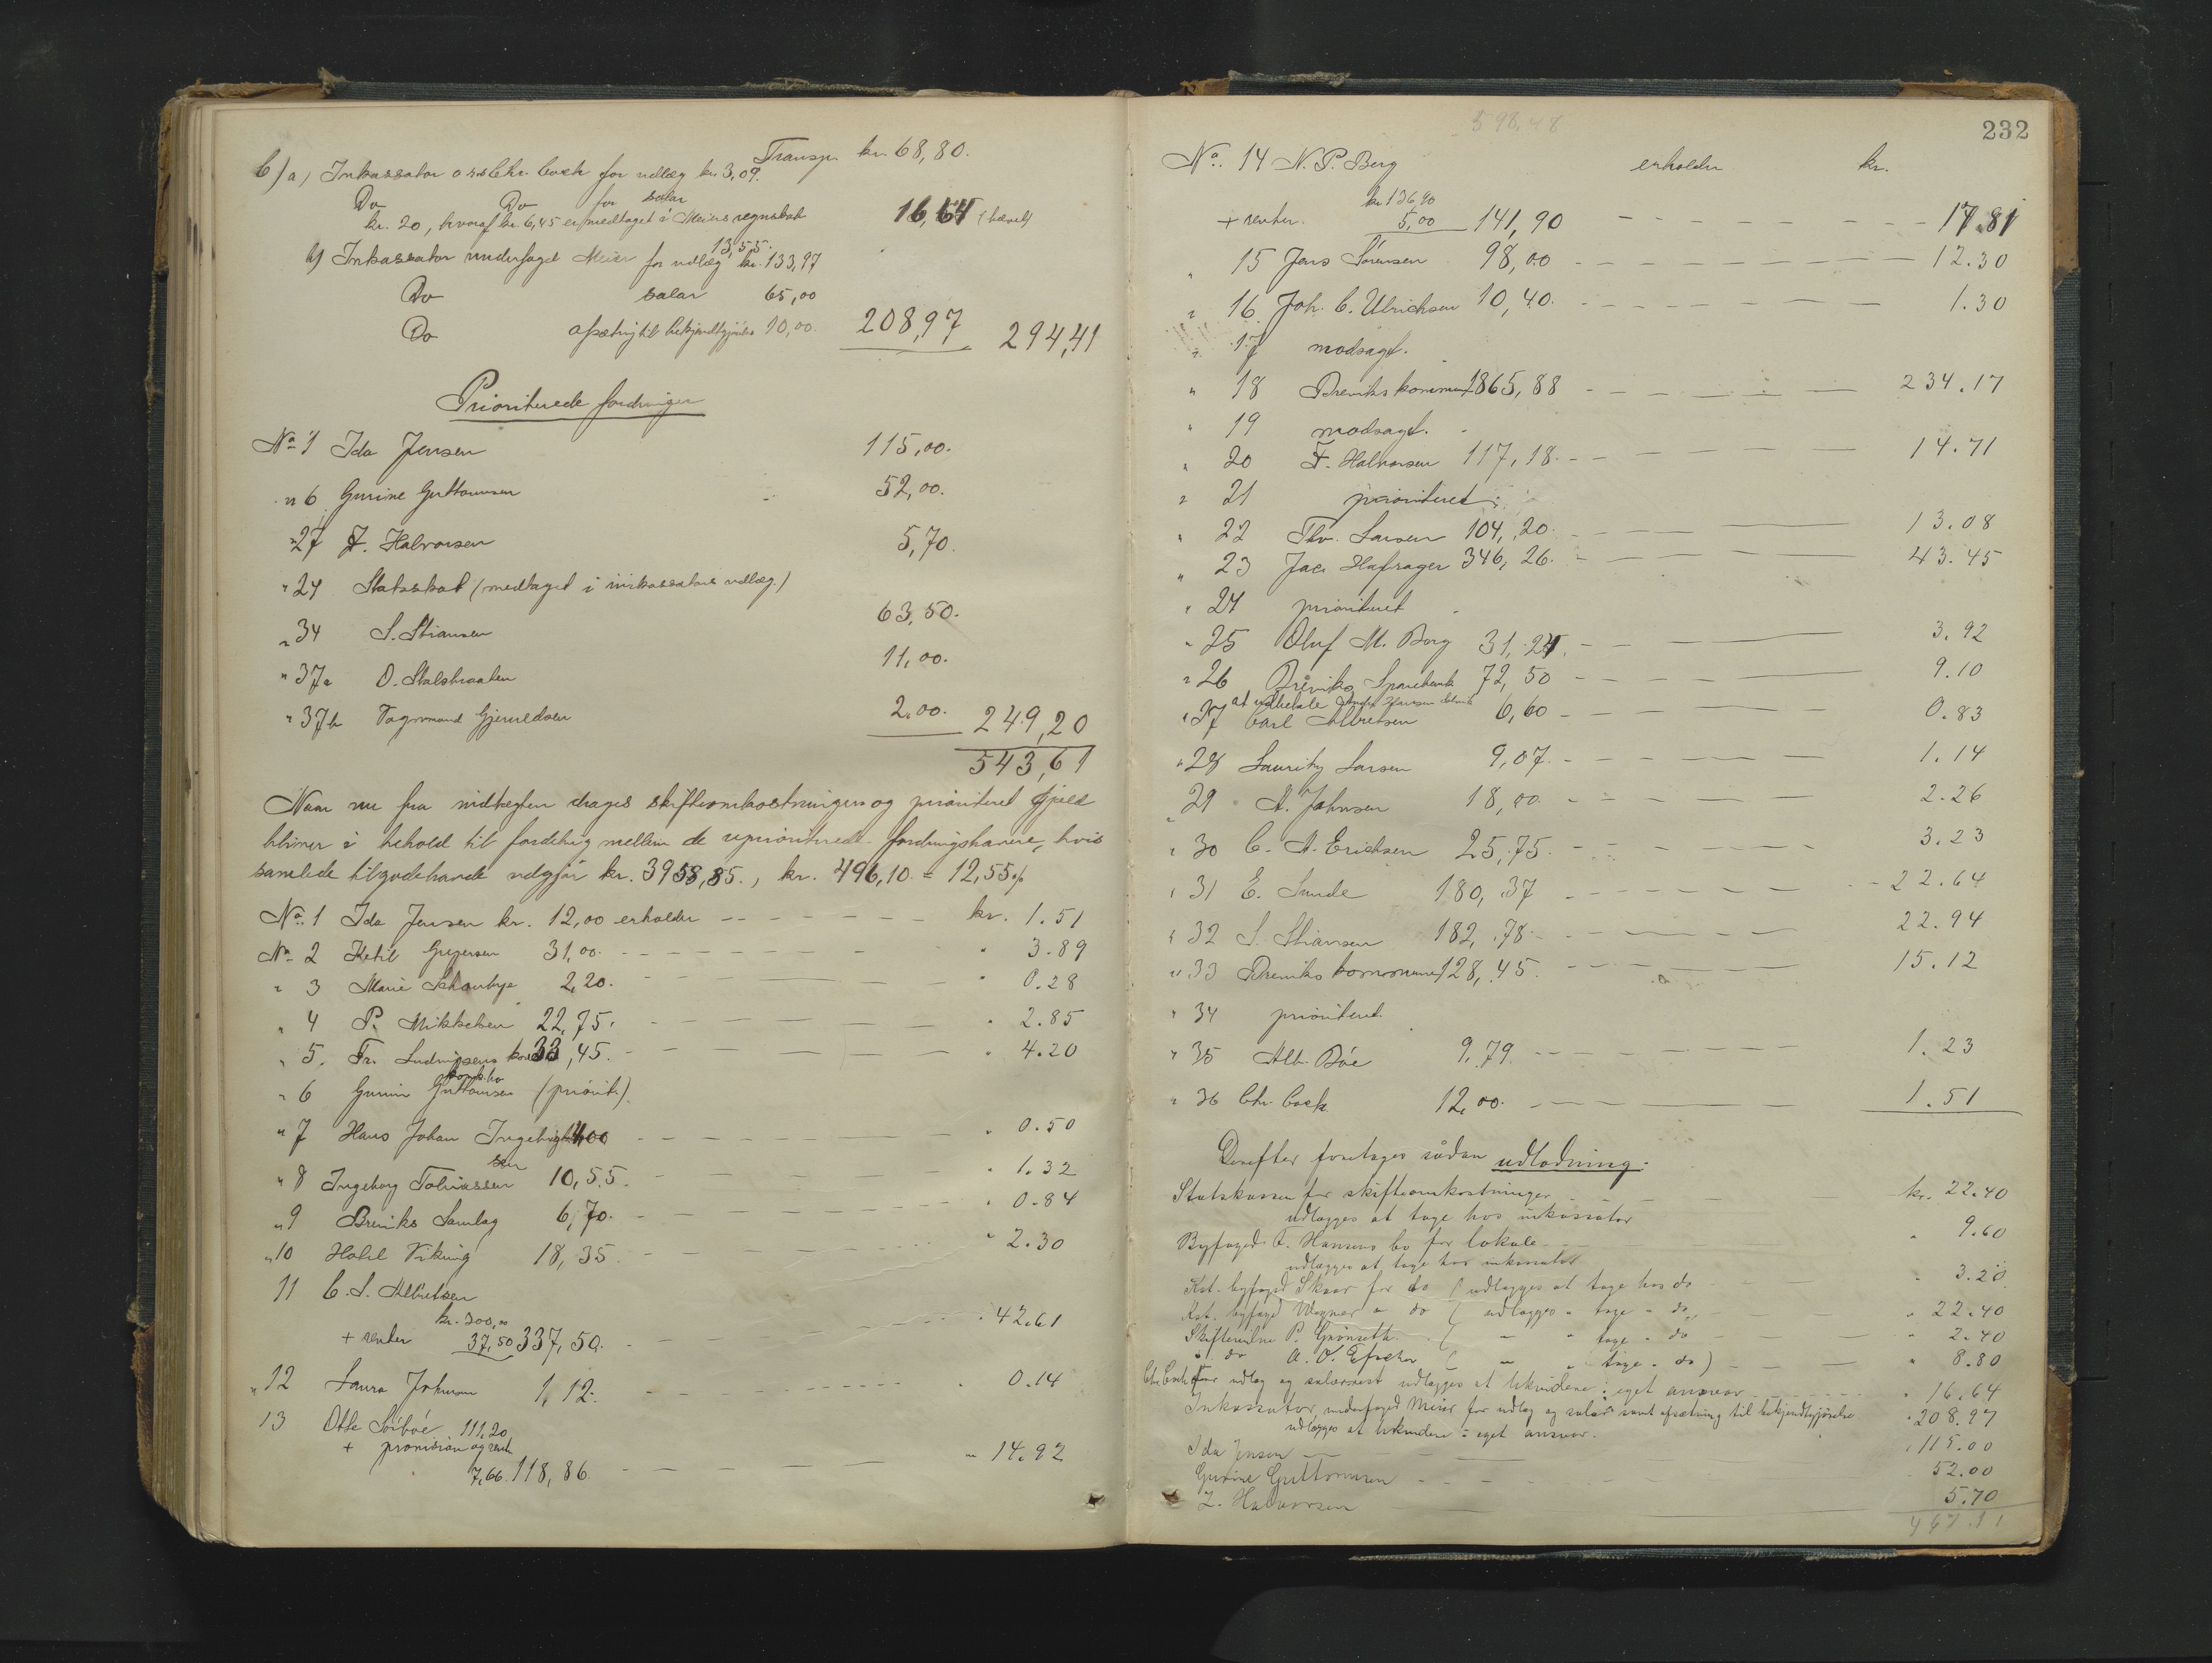 Transp. kr. 68,80.
6) a) Inkassator o.r.s. Chr. Cock for udlæg kr. 3,09.
Do Do for salær
kr. 20, hvoraf kr. 6,45 er medtaget i Meiers regnskab 16,64 (hævet)
13,55.
b) Inkassator underfoged Meier for udlæg kr. 133,97
Do salær 65,00
Do afsætning til bekjendtgjørelse 10,00. 208,97 294,41
Prioriterede fordringer
No 1 Ida Jensen 115,00.
" 6 Gurine Guttormsen 52,00.
" 27 F. Halvorsen 5,70.
" 24 Statsskat (medtaget i inkassators udlæg.)
" 34 S. Stiansen 63,50.
" 37a O. Stalstraaten 11,00.
" 37b Vognmand Gjerneldsen 2,00. 249,20
543,61
Naar nu fra indtægten drages skifteomkostningen og prioriteret gjæld
bliver i behold til fordeling mellem de uprioriterede fordringshavere, hvis
samlede tilgodehavende udgjør kr. 3958,85., kr. 496,10 = 12,55%
No. 1 Ida Jensen kr. 12,00 erholder kr. 1.51
No. 2 Ketil Gregersen 31,00. " 3.89
" 3 Marie Schanbye 2,20. " 0.28
" 4 P. Mikkelsen 22,75. " 2.85
" 5. Fr. Ludvigsens 33,45. " 4.20
konk.bo
" 6 Gurine Guttormsen (priorit.)
" 7 Hans Johan Ingebrigt 4,00 " 0.50
sen
" 8 Ingeborg Tobiassen 10,55. " 1.32
" 9 Breviks Samlag 6,70. " 0.84
" 10 Hotel Viking 18,35 " 2.30
11 C. S. Albretsen
kr. 300,00
+ renter 37,50 337,50. " 42.61
" 12 Laura Johnsen 1,12. " 0.14
13 Otte Sørbøe 111,20
+ provision og rente
7,66. 118,86. " 14.92
598.48
232
No. 14 N. P. Berg erholder kr.
kr. 136,90
+ renter. 5,00 141,90 17.81
" 15 Jens Sørensen 98,00 12.30
" 16 Joh. C. Ulrichsen 10,40. 1.30
" 17 modsagt.
" 18 Breviks kommune 1865,88 234.17
" 19 modsagt.
" 20 F. Halvorsen 117,18. 14.71
" 21 prioriteret.
" 22 Thv. Larsen 104,20. 13.08
" 23 Jac. Hafrager 346,26. 43.45
" 24 prioriteret
" 25 Oluf M. Borg 31,24. 3.92
" 26 Breviks Sparebank 72,50 9.10
at udbetale
" 27 Carl Albretsen 6,60 0.83
" 28 Lauritz Larsen 9,07. 1.14
" 29 A. Johnsen 18,00. 2.26
" 30 C. A. Erichsen 25,75. 3.23
" 31 E. Sunde 180,37 22.64
" 32 S. Stiansen 182,78. 22.94
" 33 Breviks kommune 128,45. 15.12
" 34 prioriteret.
" 35 Alb. Bøe 9,79. 1.23
" 36 Chr. Cock 12,00. 1.51
Derefter foretages sådan udlodning:
Statskassen for skifteomkostninger kr. 22.40
udlægges at tage hos inkassator
Byfoged C. Hansens bo for lokale " 9.60
udlægges at tage hos inkassator
Kst. byfoged Skaar for do (udlægges at tage hos do " 3.20
Kst. byfoged Wagner " do (udlægges " tage " do " 22.40
Skifteretsv. P. Grønseth. ( " " tage " do " 2.40
" do A. O. ( " " tage " do) " 8.80
Chr. Cock for udlæg og salærrest udlægges at likvidere i eget ansvar " 16.64
Inkassator, underfoged Meier for udlæg og salær samt afsætning til bekjendtgjørelse " 208.97
udlægges at likvidere i eget ansvar.
Ida Jensen " 115.00
Gurine Guttormsen 52.00
F. Halvorsen 5.70
467.11